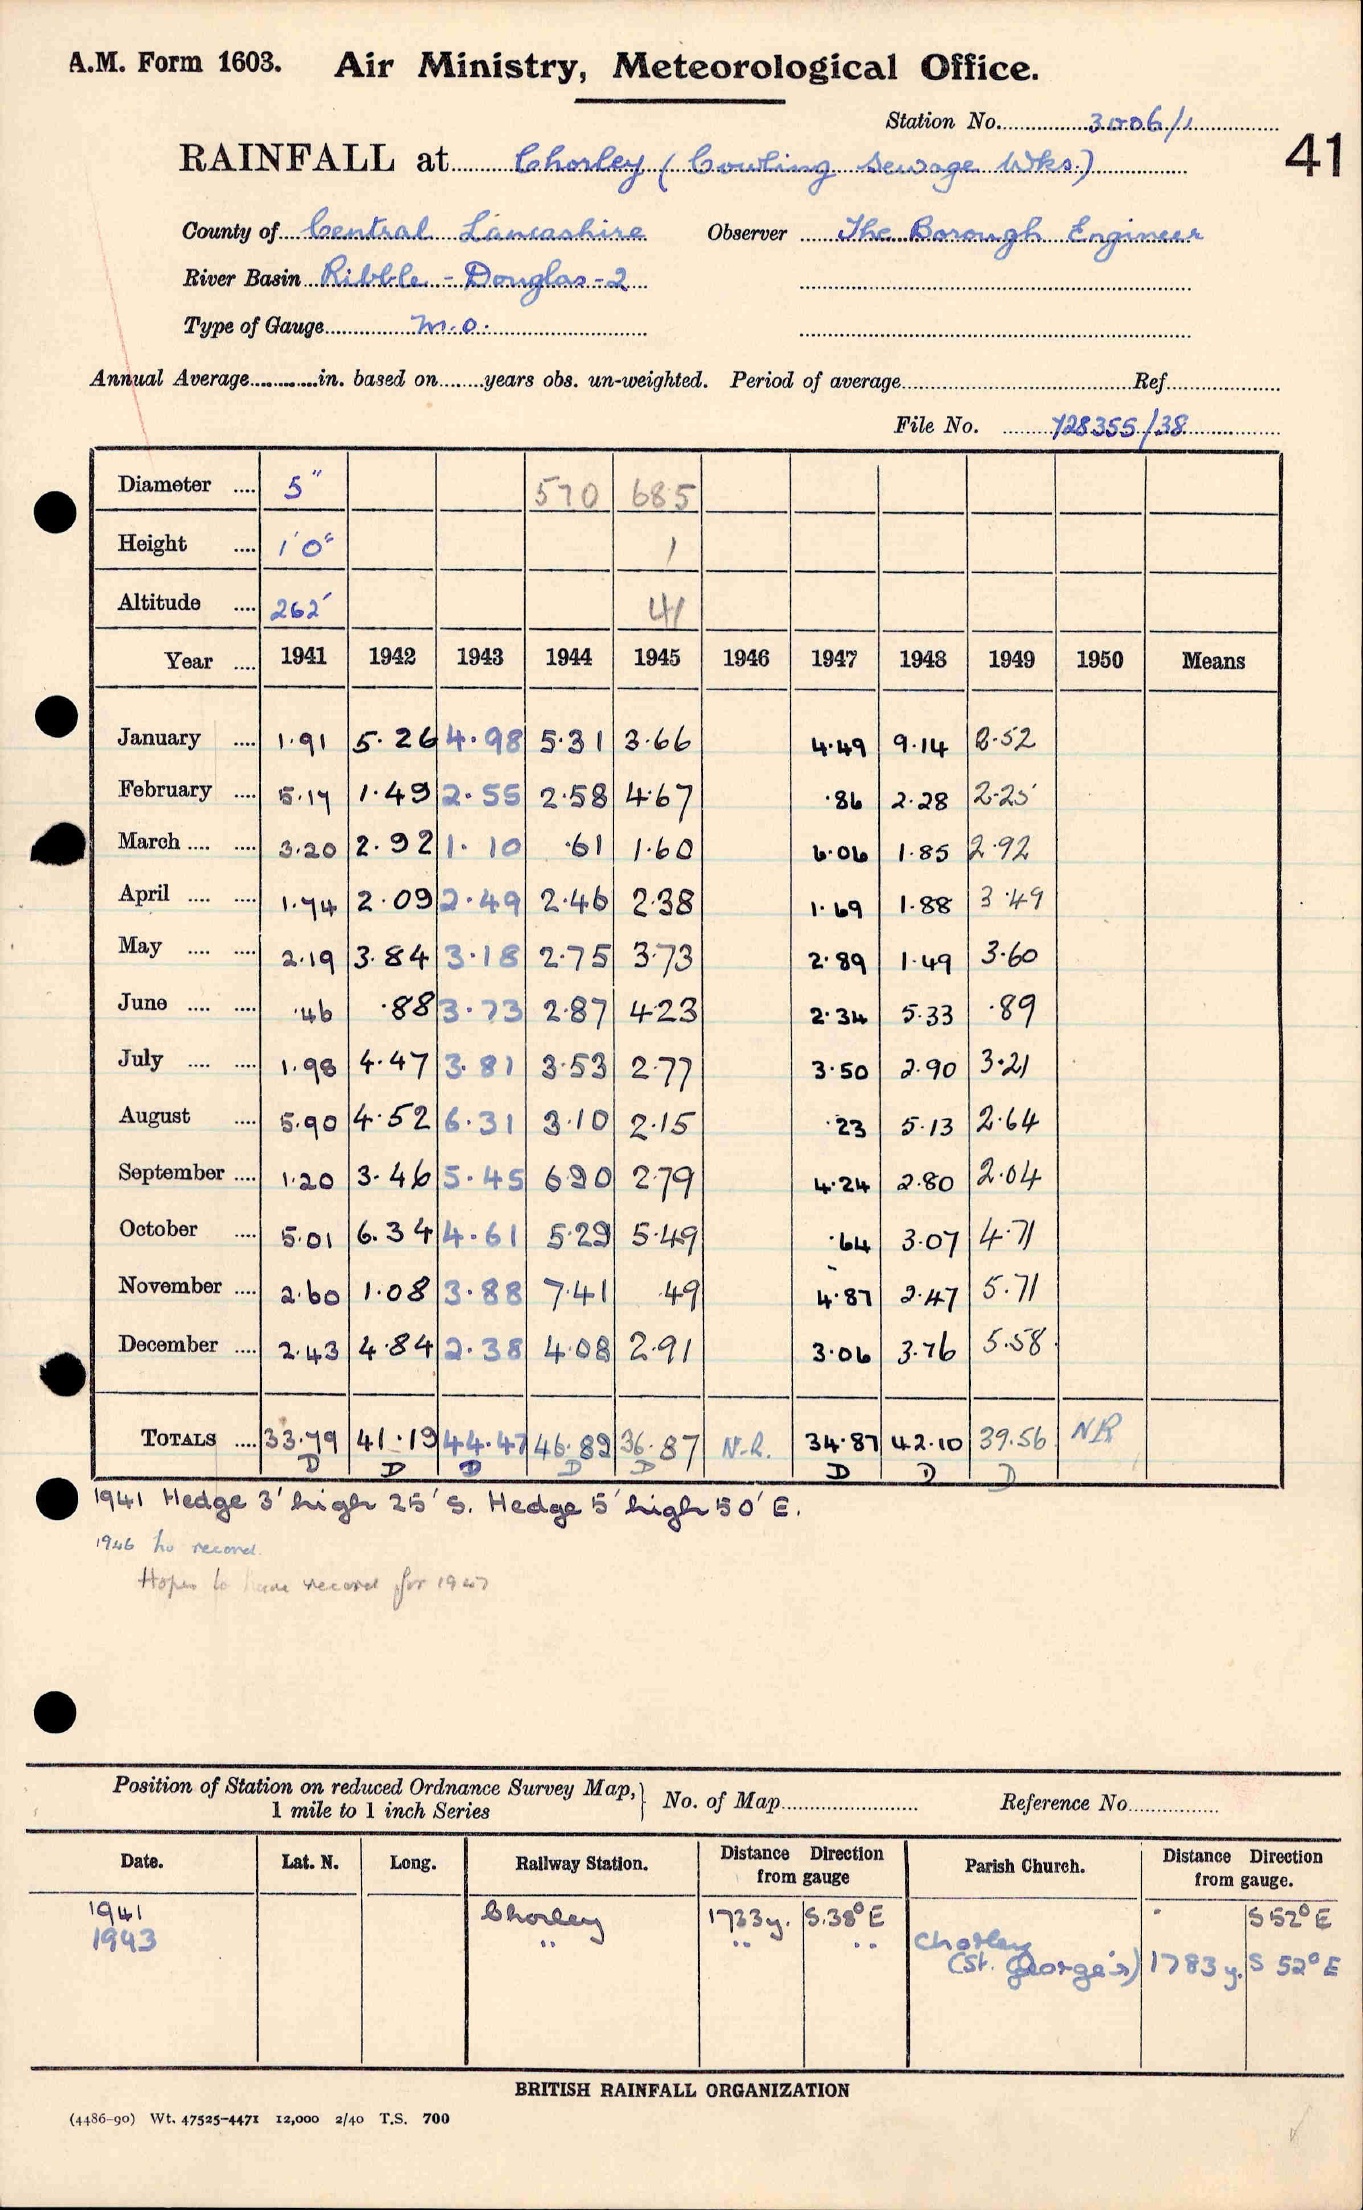 A.M. Form 1603. Air Ministry, Meteorological Office.
Station No. 3006/1
41
RAINFALL at Chorley (Cowling Sewage Wks.)
County of Central Lancashire Observer The Borough Engineer
River Basin Ribble - Douglas - 2
Type of Gauge M.O.
Annual Average in. based on years obs. un-weighted. Period of average Ref.
File No. 728355/38
Diameter .... 5" 570 685
Height .... 1'0" 1
Altitude .... 262' 41
Year .... 1941 1942 1943 1944 1945 1946 1947 1948 1949 1950 Means
January .... 1.91 5.26 4.98 5.31 3.66 4.49 9.14 2.52
February .... 5.17 1.49 2.55 2.58 4.67 .86 2.28 2.25
March .... .... 3.20 2.92 1.10 .61 1.60 6.06 1.85 2.92
April .... .... 1.74 2.09 2.49 2.46 2.38 1.69 1.88 3.49
May .... .... 2.19 3.84 3.18 2.75 3.73 2.89 1.49 3.60
June .... .... .46 .88 3.73 2.87 4.23 2.34 5.33 .89
July .... .... 1.98 4.47 3.81 3.53 2.77 3.50 2.90 3.21
August .... 5.90 4.52 6.31 3.10 2.15 .23 5.13 2.64
September .... 1.20 3.46 5.45 6.90 2.79 4.24 2.80 2.04
October .... 5.01 6.34 4.61 5.29 5.49 .64 3.07 4.71
November .... 2.60 1.08 3.88 7.41 .49 4.87 2.47 5.71
December .... 2.43 4.84 2.38 4.08 2.91 3.06 3.76 5.58
TOTALS .... 33.79 41.19 44.47 46.89 36.87 N.R. 34.87 42.10 39.56 NR
D D D D D D D D
1941 Hedge 3' high 25' S. Hedge 5' high 50' E.
1946 no record.
Hopes to have record for 1947
Position of Station on reduced Ordnance Survey Map, 1 mile to 1 inch Series } No. of Map Reference No.
Date. Lat. N. Long. Railway Station. Distance Direction from gauge Parish Church. Distance Direction from gauge.
1941 Chorley 1733y. S.38°E " S 52°E
1943 " " " Chorley (St. George's) 1783y. S 52°E
BRITISH RAINFALL ORGANIZATION
(4486-90) Wt. 47525-4471 12,000 2/40 T.S. 700